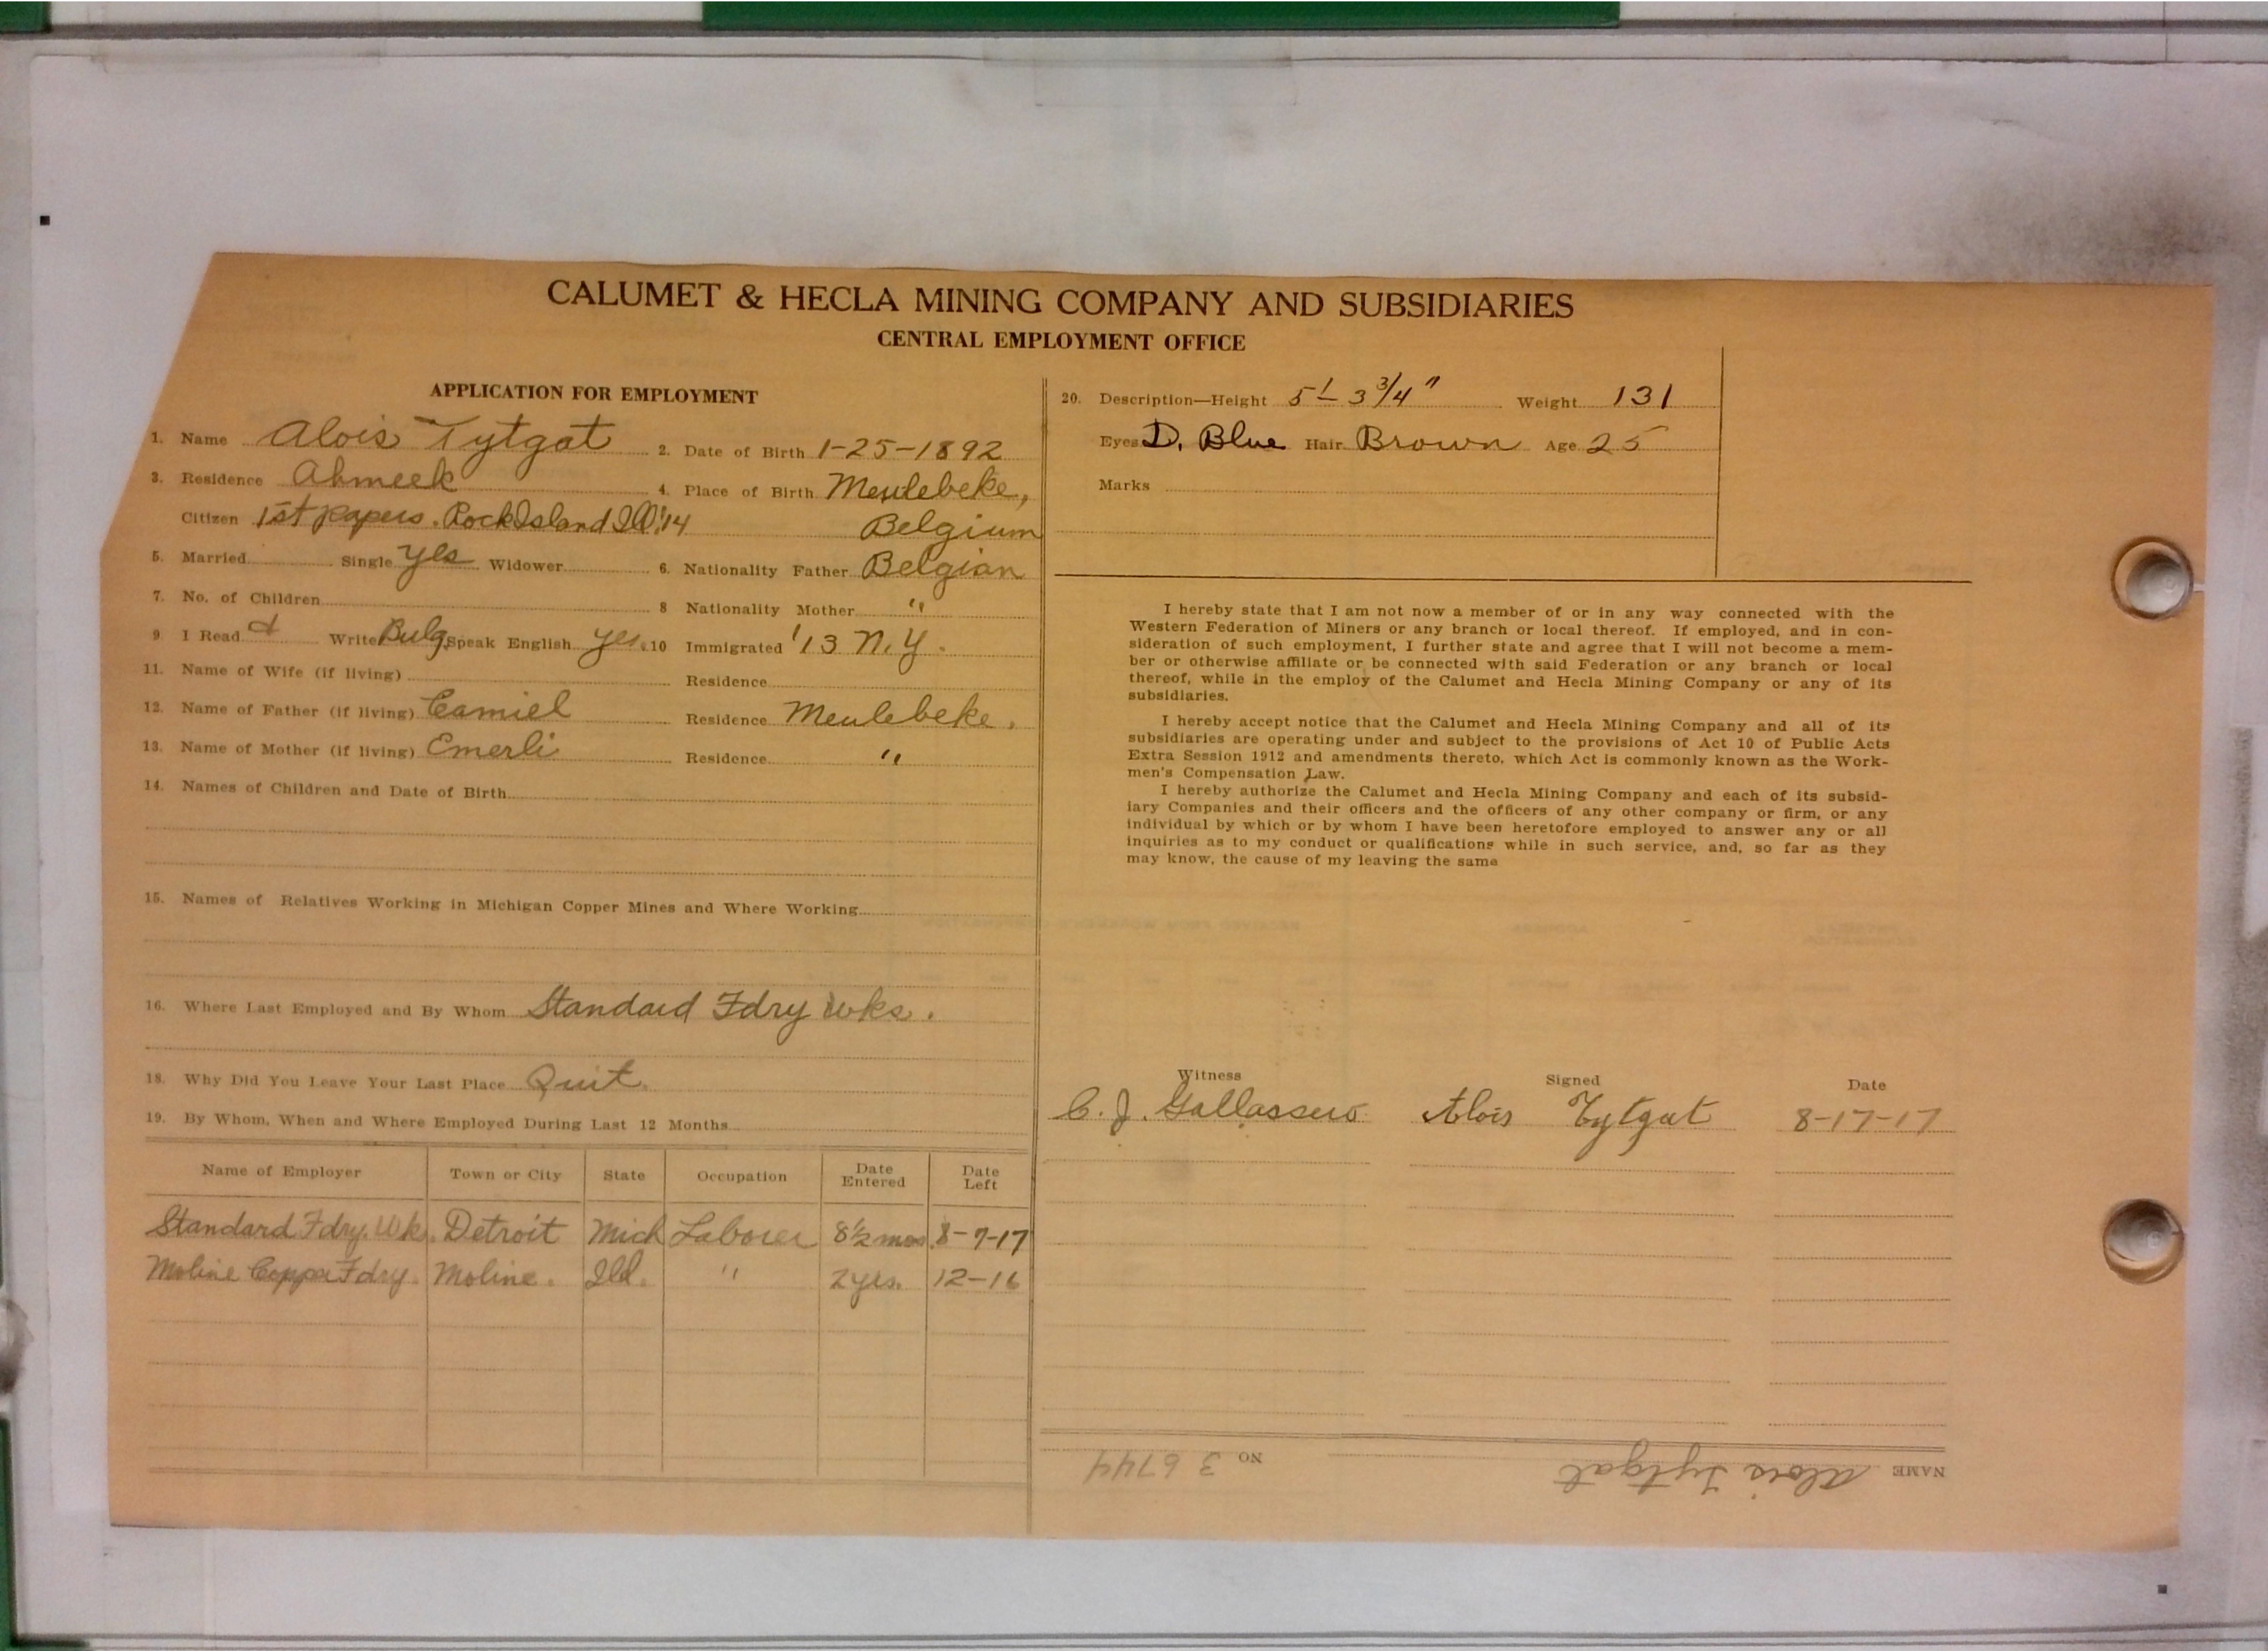 CALUMET & HECLA MINING COMPANY AND SUBSIDIARIES
CENTRAL EMPLOYMENT OFFICE
APPLICATION FOR EMPLOYMENT
1. Name Alois Tytgat 2. Date of Birth 1-25-1892
3. Residence Ahmeek 4. Place of Birth Meulebeke,
Citizen 1st papers. Rock Island Ill '14 Belgium
5. Married Single yes Widower 6. Nationality Father Belgian
7. No. of Children 8 Nationality Mother "
9. I Read & Write Bulg. Speak English yes. 10 Immigrated '13 N.Y.
11. Name of Wife (if living) Residence
12. Name of Father (if living) Camiel Residence Meulebeke.
13. Name of Mother (if living) Emerli Residence "
14. Names of Children and Date of Birth
15. Names of Relatives Working in Michigan Copper Mines and Where Working
16. Where Last Employed and By Whom Standard Fdry Wks.
18. Why Did You Leave Your Last Place Quit.
19. By Whom, When and Where Employed During Last 12 Months
Name of Employer Town or City State Occupation Date Entered Date Left
Standard Fdry. Wk. Detroit Mich Laborer 8½ mos. 8-7-17
Moline Copper Fdry. Moline. Ill. " 2 yrs. 12-16
20. Description—Height 5' 3 3/4" Weight 131
Eyes D. Blue Hair Brown Age 25
Marks
I hereby state that I am not now a member of or in any way connected with the
Western Federation of Miners or any branch or local thereof. If employed, and in con-
sideration of such employment, I further state and agree that I will not become a mem-
ber or otherwise affiliate or be connected with said Federation or any branch or local
thereof, while in the employ of the Calumet and Hecla Mining Company or any of its
subsidiaries.
I hereby accept notice that the Calumet and Hecla Mining Company and all of its
subsidiaries are operating under and subject to the provisions of Act 10 of Public Acts
Extra Session 1912 and amendments thereto, which Act is commonly known as the Work-
men's Compensation Law.
I hereby authorize the Calumet and Hecla Mining Company and each of its subsid-
iary Companies and their officers and the officers of any other company or firm, or any
individual by which or by whom I have been heretofore employed to answer any or all
inquiries as to my conduct or qualifications while in such service, and, so far as they
may know, the cause of my leaving the same
Witness Signed Date
C. J. Alois Tytgat 8-17-17
NAME Alois Tytgat NO 36744